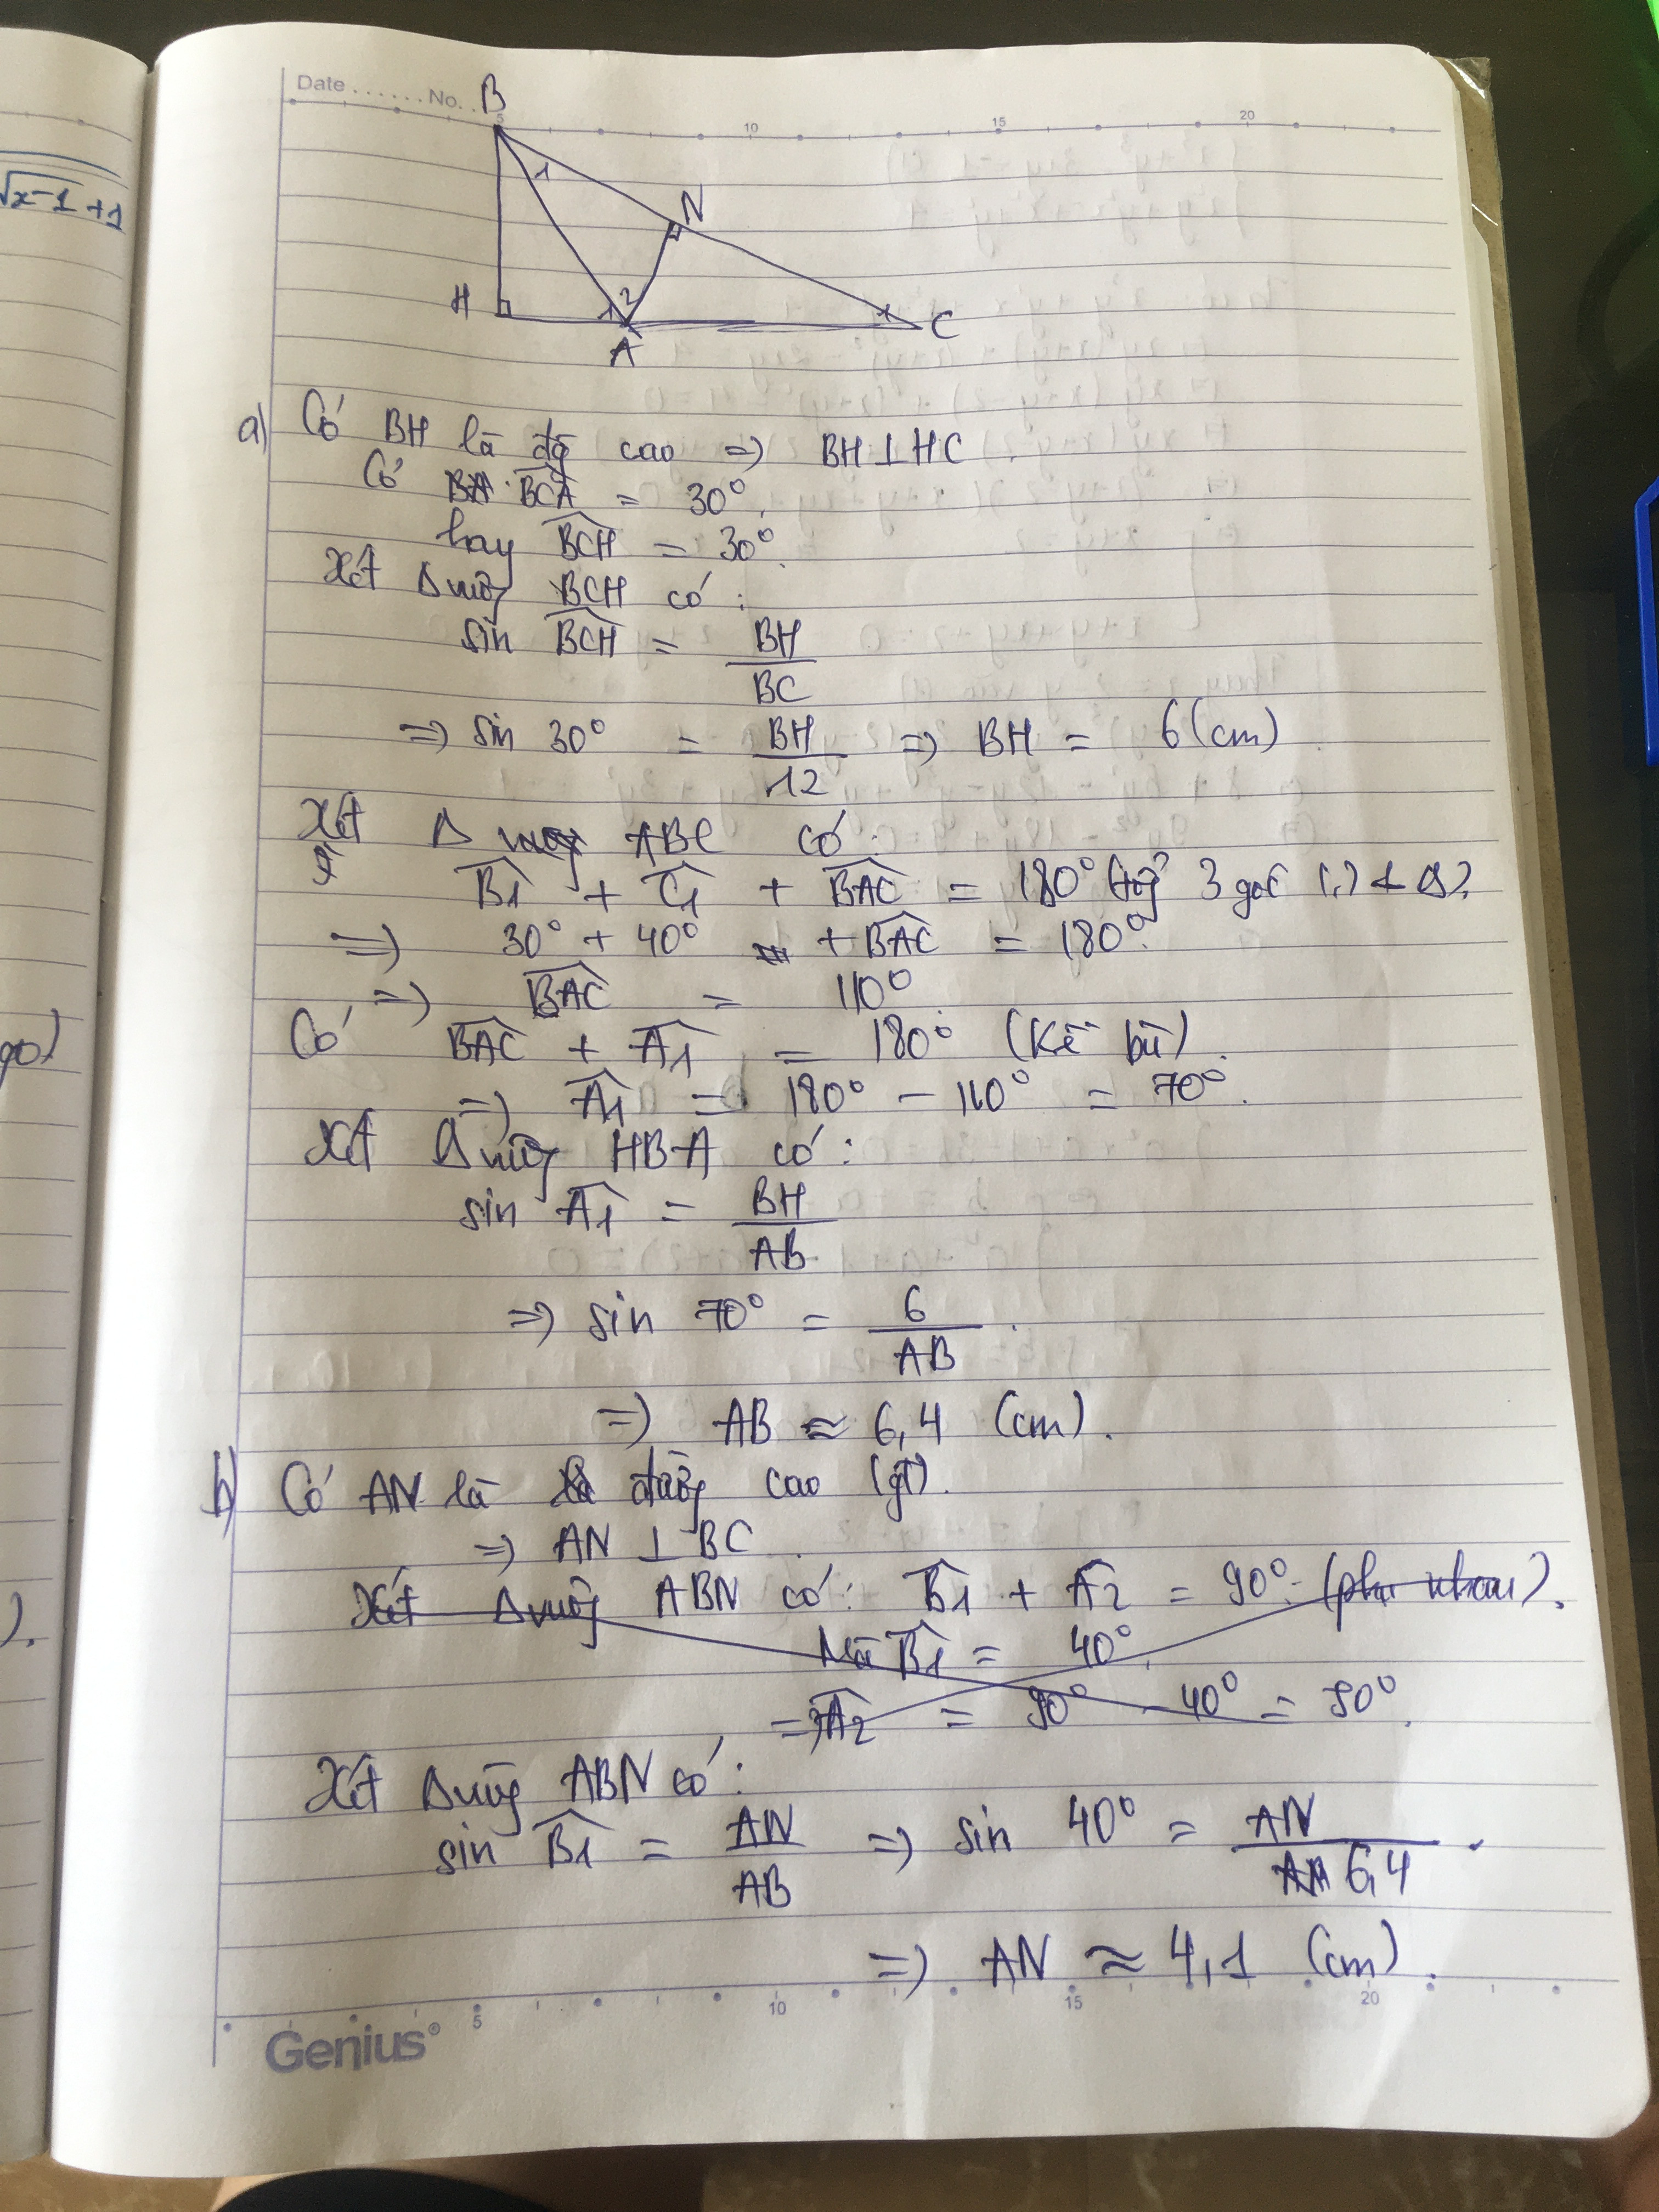 √x-1 + 1
Date ...... No. ..
B
5 10 15 20
1
N
H
1 2
A
C
a) Có BH là độ cao => BH ⊥ HC
Có BCA = 30°.
hay BCH = 30°.
Xét Δ vuông BCH có:
sin BCH = BH/BC
=> sin 30° = BH/12 => BH = 6 (cm)
Xét Δ ABC có:
B1 + C1 + BAC = 180° (tổng 3 góc
=> 30° + 40° + BAC = 180°.
=> BAC = 110°.
Có BAC + A1 = 180° (kề bù).
=> A1 = 180° - 110° = 70°.
Xét Δ vuông HBA có:
sin A1 = BH/AB
=> sin 70° = 6/AB.
=> AB ≈ 6,4 (cm).
b) Có AN là đường cao (gt).
=> AN ⊥ BC
Xét Δ vuông ABN có: B1 + A2 = 90° (phụ nhau).
Mà B1 = 40°.
=> A2 = 90° - 40° = 50°.
Xét Δ vuông ABN có:
sin B1 = AN/AB => sin 40° = AN/6,4.
=> AN ≈ 4,1 (cm).
5 10 15 20
Genius